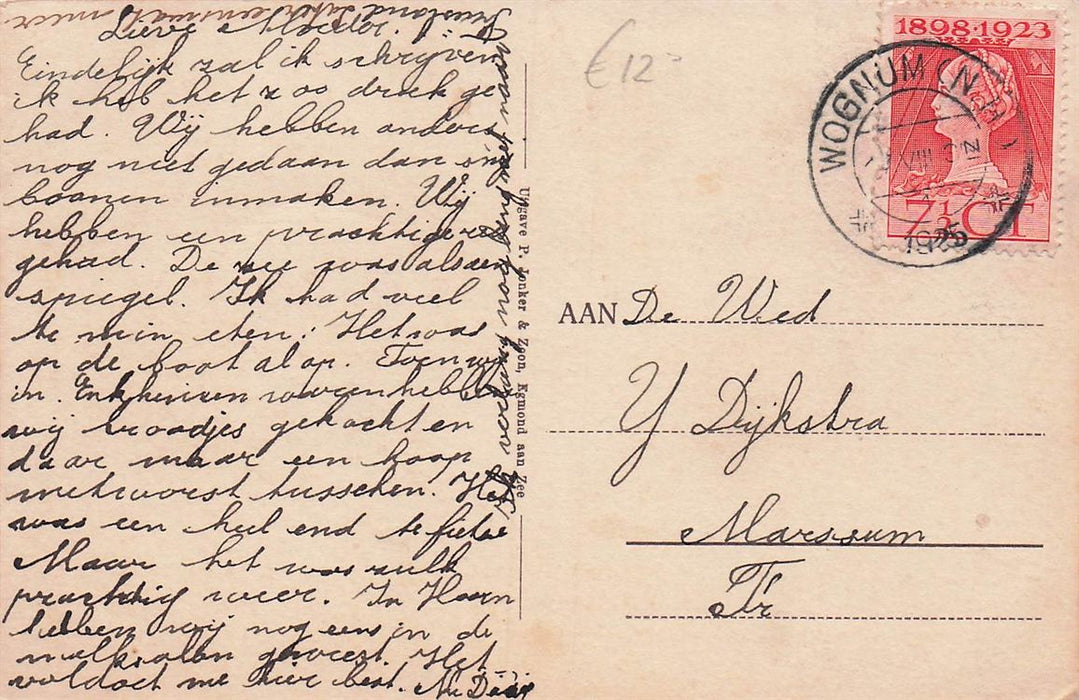 Friesland
Lieve Moeder.
Eindelijk zal ik schrijven
ik heb het zoo druk ge
had. Wij hebben anders
nog niet gedaan dan snij
boonen inmaken. Wij
hebben een prachtige reis
gehad. De zee was als een
spiegel. Ik had veel
te min eten. Het was
op de boot al op. Toen wij
in Enkhuizen waren hebben
wij broodjes gekocht en
daar maar een hoop
metworst tusschen. Het
was een heel end te fietsen
Maar het was zulk
prachtig weer. In Hoorn
hebben wij nog eens in de
melksalon geweest. Het
voldoet me hier best. Nu Dáág
Uitgave P. Jonker & Zoon, Egmond aan Zee
€12-
1898·1923
7½ CT
WOGNUM (N.H)
VIII
1925
AAN De Wed
Y Dijkstra
Marssum
Fr